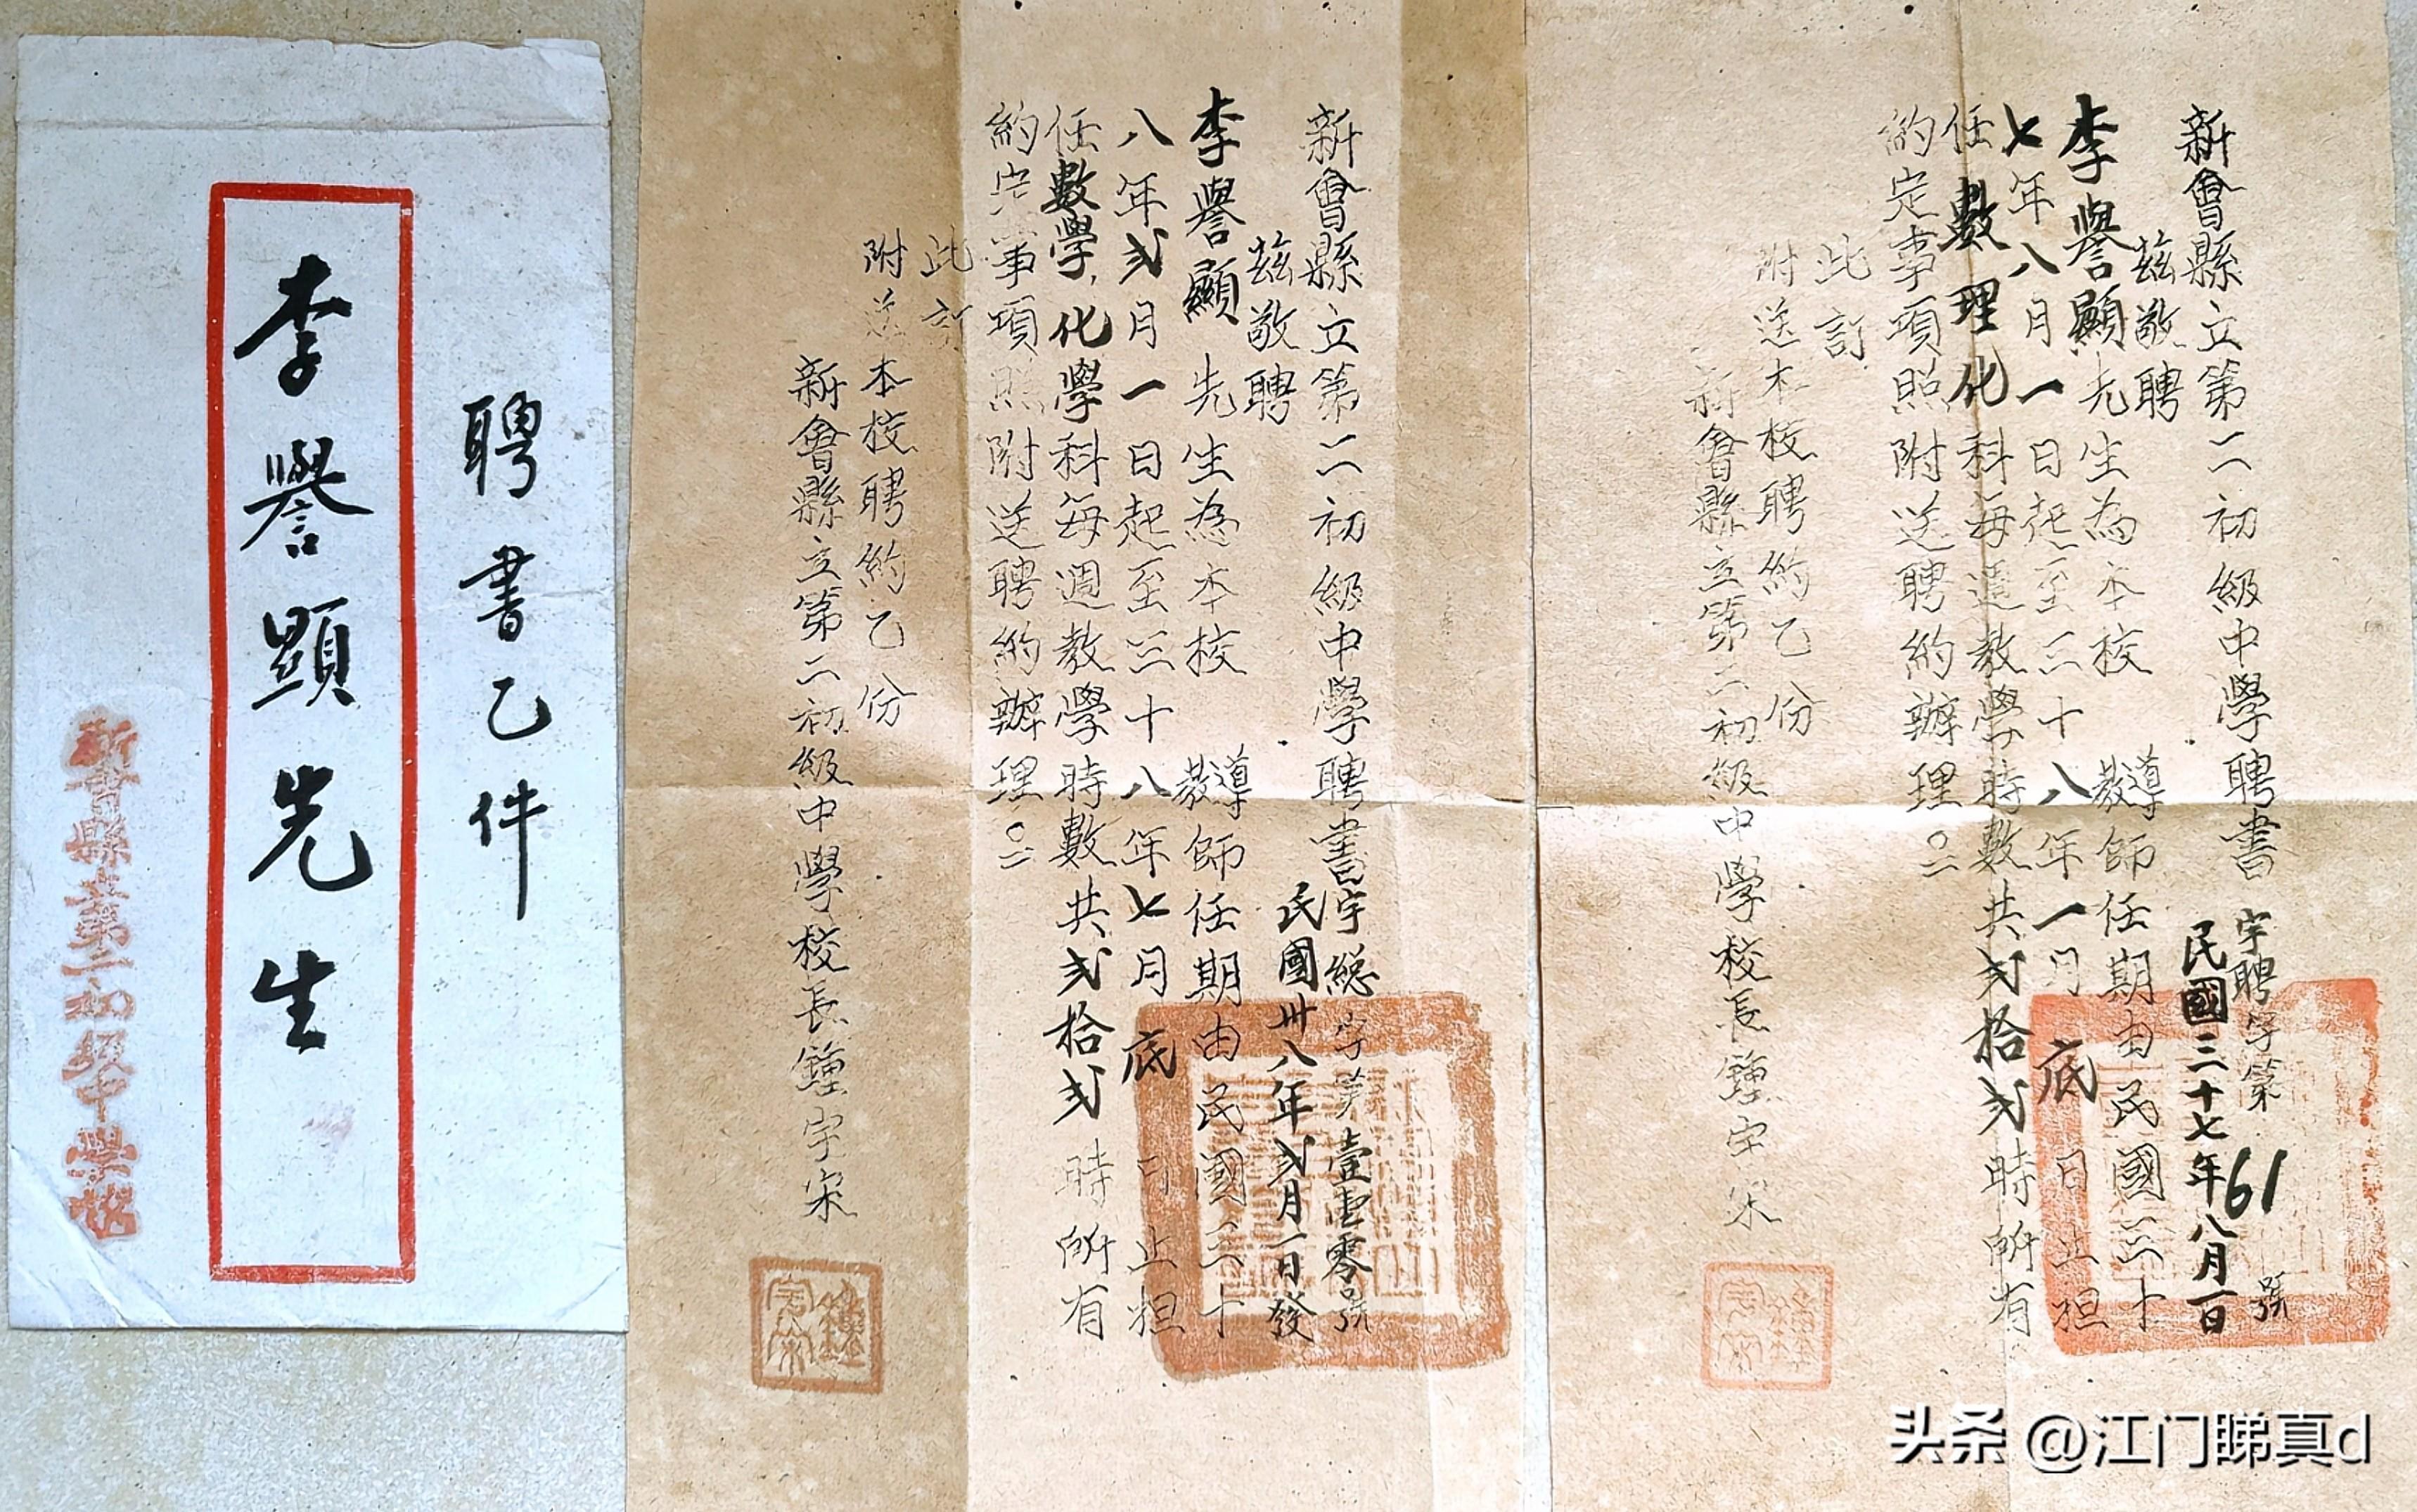 聘書乙件
李譽顯先生
新會縣立第二初級中學校
新會縣立第二初級中學聘書
宇聘字第61號
民國三十七年八月一日
茲敬聘
李譽顯先生為本校教導師任期由民國三十
七年八月一日起至三十八年一月底日止担
任數理化科每週教學時數共弍拾弍時所有
約定事項照附送聘約辦理
此訂
附送本校聘約乙份
新會縣立第二初級中學校長鍾宇宋
新會縣立第二初級中學聘書
宇總字第壹壹零號
民國卅八年弍月一日發
茲敬聘
李譽顯先生為本校教導師任期由民國三十
八年弍月一日起至三十八年七月底日止担
任數學,化學科每週教學時數共弍拾弍時所有
約定事項照附送聘約辦理
此訂
附送本校聘約乙份
新會縣立第二初級中學校長鍾宇宋
头条 @江门睇真d